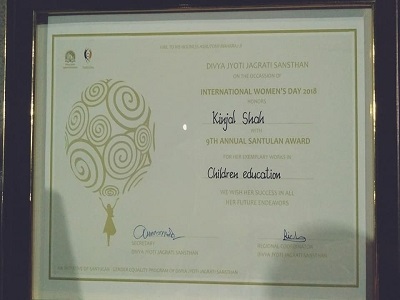 DIVYA JYOTI JAGRATI SANSTHAN
ON THE OCCASION OF
INTERNATIONAL WOMEN'S DAY 2018
HONORS
Kinjal Shah
WITH
9TH ANNUAL SANTULAN AWARD
FOR HER EXEMPLARY WORKS IN
Children education
WE WISH HER SUCCESS IN ALL
HER FUTURE ENDEAVORS
SECRETARY
DIVYA JYOTI JAGRATI SANSTHAN
REGIONAL COORDINATOR
DIVYA JYOTI JAGRATI SANSTHAN
SANTULAN - GENDER EQUALITY PROGRAM OF DIVYA JYOTI JAGRATI SANSTHAN